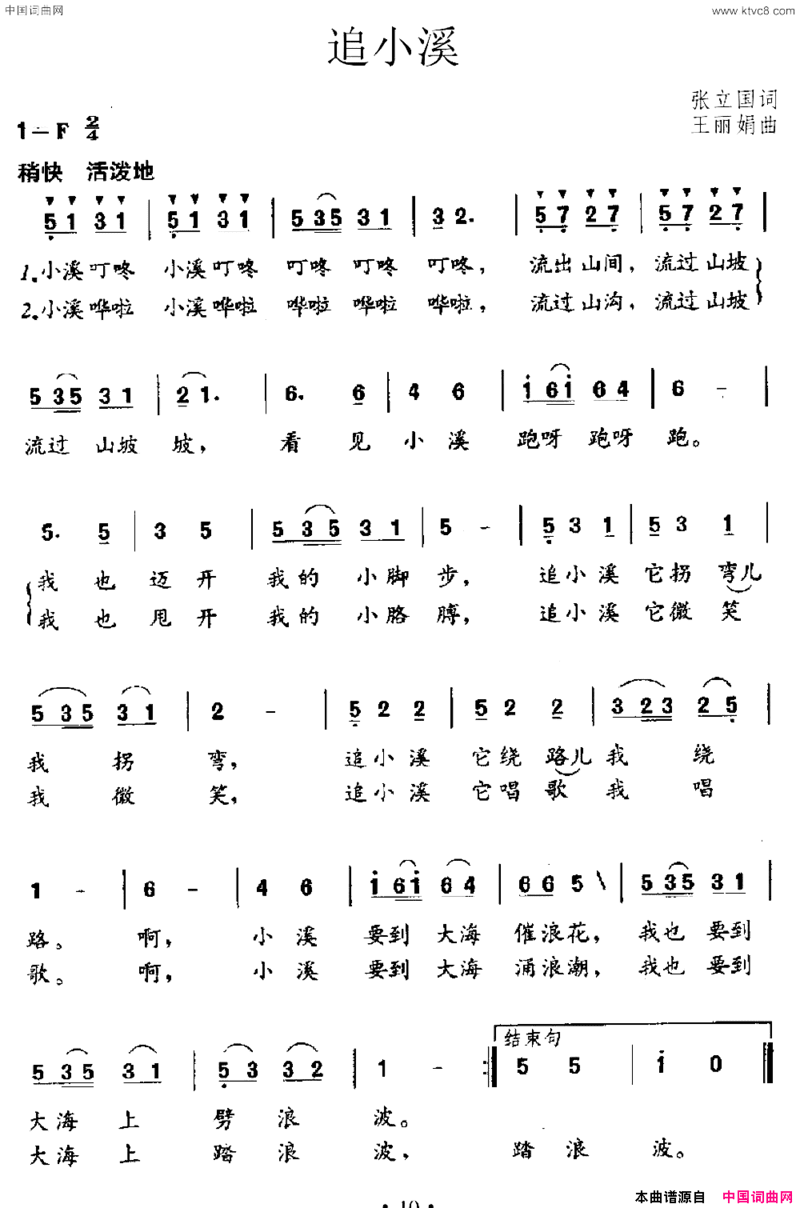 中国词曲网
www.ktvc8.com
追小溪
张立国词
王丽娟曲
1=F 2/4
稍快 活泼地
5 1 3 1 | 5 1 3 1 | 5 3 5 3 1 | 3 2. | 5 7 2 7 | 5 7 2 7 |
1.小溪叮咚 小溪叮咚 叮咚 叮咚 叮咚, 流出山间, 流过山坡
2.小溪哗啦 小溪哗啦 哗啦 哗啦 哗啦, 流过山沟, 流过山坡
5 3 5 3 1 | 2 1. | 6. 6 | 4 6 | i 6 i 6 4 | 6 - |
流过 山坡 坡, 看 见 小 溪 跑呀 跑呀 跑。
5. 5 | 3 5 | 5 3 5 3 1 | 5 - | 5 3 1 | 5 3 1 |
我 也 迈 开 我 的 小 脚 步, 追 小 溪 它 拐 弯儿
我 也 甩 开 我 的 小 胳 膊, 追 小 溪 它 微 笑
5 3 5 3 1 | 2 - | 5 2 2 | 5 2 2 | 3 2 3 2 5 |
我 拐 弯, 追 小 溪 它 绕 路儿 我 绕
我 微 笑, 追 小 溪 它 唱 歌 我 唱
1 - | 6 - | 4 6 | i 6 i 6 4 | 6 6 5 \ | 5 3 5 3 1 |
路。 啊, 小 溪 要到 大海 催浪花, 我也 要到
歌。 啊, 小 溪 要到 大海 涌浪潮, 我也 要到
结束句
5 3 5 3 1 | 5 3 3 2 | 1 - :‖ 5 5 | i 0 ‖
大海 上 劈 浪 波。
大海 上 踏 浪 波, 踏 浪 波。
· 10 ·
本曲谱源自 中国词曲网